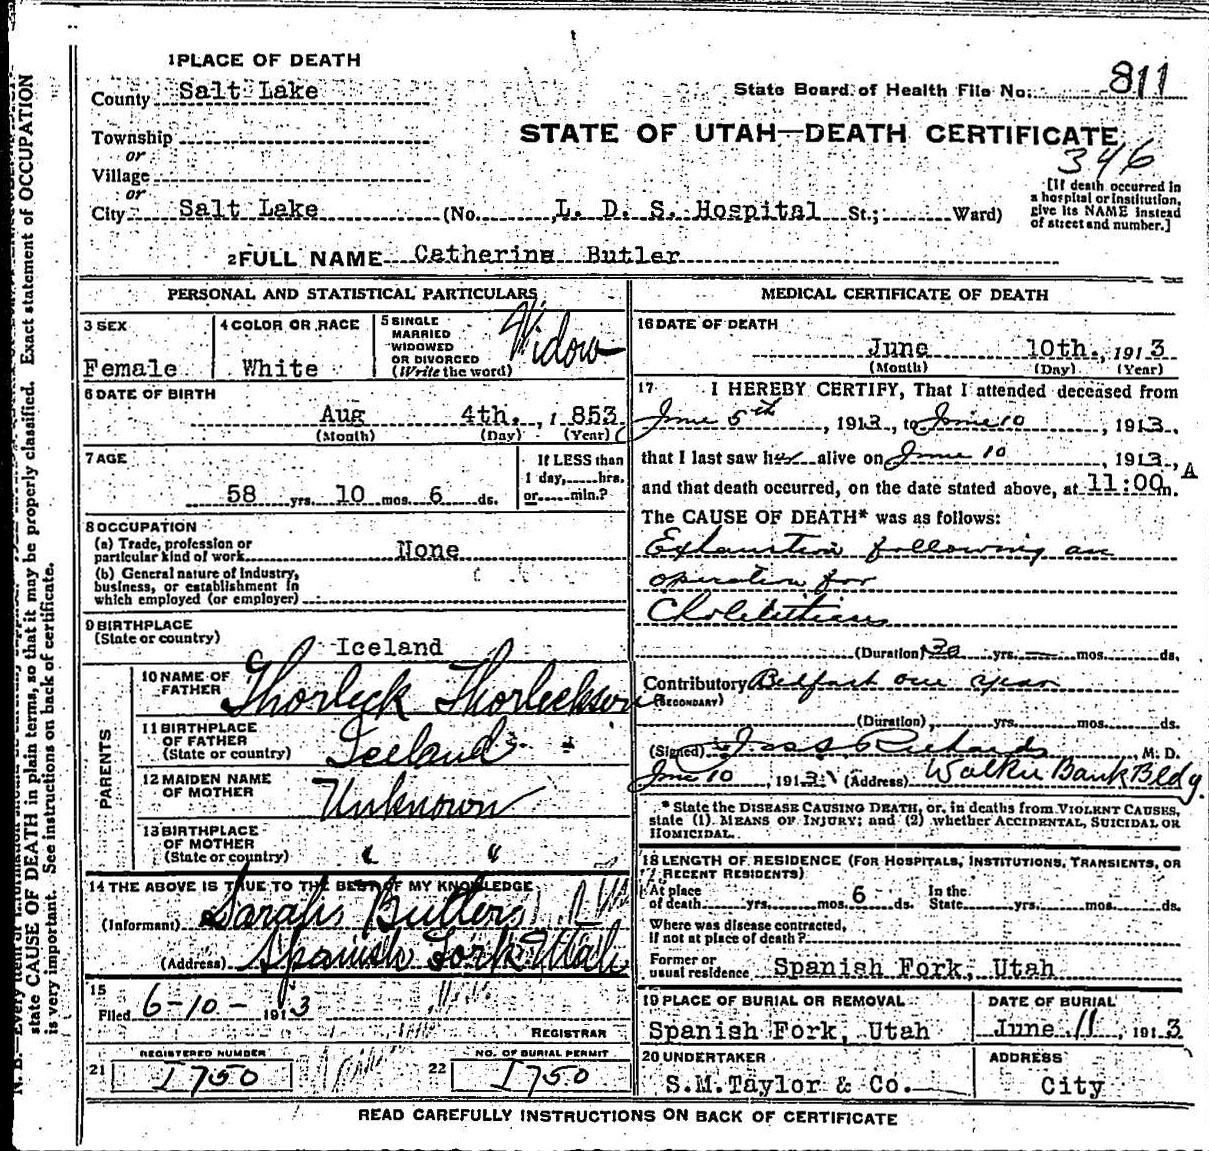 1 PLACE OF DEATH
County Salt Lake
State Board of Health File No. 811
Township
or
STATE OF UTAH—DEATH CERTIFICATE
346
Village
or
City Salt Lake (No. L. D. S. Hospital St.; Ward)
[If death occurred in
a hospital or institution,
give its NAME instead
of street and number.]
2 FULL NAME Catherine Butler
PERSONAL AND STATISTICAL PARTICULARS
3 SEX
Female
4 COLOR OR RACE
White
5 SINGLE
MARRIED
WIDOWED
OR DIVORCED
(Write the word)
Widow
6 DATE OF BIRTH
Aug 4th., 1853
(Month) (Day) (Year)
7 AGE
58 yrs. 10 mos. 6 ds.
If LESS than
1 day, hrs.
or min.?
8 OCCUPATION
(a) Trade, profession or
particular kind of work None
(b) General nature of industry,
business, or establishment in
which employed (or employer)
9 BIRTHPLACE
(State or country)
Iceland
PARENTS
10 NAME OF
FATHER
Thorleck Thorleckson
11 BIRTHPLACE
OF FATHER
(State or country)
Iceland
12 MAIDEN NAME
OF MOTHER
Unknown
13 BIRTHPLACE
OF MOTHER
(State or country) " "
14 THE ABOVE IS TRUE TO THE BEST OF MY KNOWLEDGE
(Informant) Sarah Butler
(Address) Spanish Fork Utah
15
Filed 6-10- 1913
REGISTRAR
21 REGISTERED NUMBER
1750
22 NO. OF BURIAL PERMIT
1750
MEDICAL CERTIFICATE OF DEATH
16 DATE OF DEATH
June 10th., 1913
(Month) (Day) (Year)
17 I HEREBY CERTIFY, That I attended deceased from
June 5th, 1913, to June 10, 1913.
that I last saw her alive on June 10, 1913,
and that death occurred, on the date stated above, at 11:00 A m.
The CAUSE OF DEATH* was as follows:
Exhaustion following an
operation for
(Duration) yrs. — mos. ds.
Contributory one year
(SECONDARY)
(Duration) yrs. mos. ds.
(Signed) Richards M. D.
June 10, 1913 (Address) Walker Bank Bldg.
* State the DISEASE CAUSING DEATH, or, in deaths from VIOLENT CAUSES,
state (1) MEANS OF INJURY; and (2) whether ACCIDENTAL, SUICIDAL OR
HOMICIDAL.
18 LENGTH OF RESIDENCE (FOR HOSPITALS, INSTITUTIONS, TRANSIENTS, OR
RECENT RESIDENTS)
At place
of death yrs. mos. 6 ds.
In the
State yrs. mos. ds.
Where was disease contracted,
if not at place of death?
Former or
usual residence Spanish Fork, Utah
19 PLACE OF BURIAL OR REMOVAL
Spanish Fork, Utah
DATE OF BURIAL
June 11, 1913
20 UNDERTAKER
S.M. Taylor & Co.
ADDRESS
City
READ CAREFULLY INSTRUCTIONS ON BACK OF CERTIFICATE
state CAUSE OF DEATH in plain terms, so that it may be properly classified. Exact statement of OCCUPATION
is very important. See instructions on back of certificate.